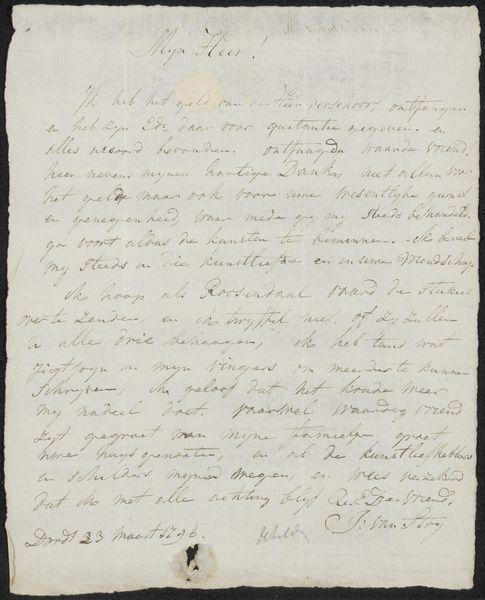 Mijn Heer!
Ik heb het geld van de Heer verschoor ontfangen
en heb zyn Ed: daar voor quitantie gegeven en
alles accoord bevonden. ontfangd waarde vriend
hier nevens mynen hartige Dank, niet alleen voor
het geld maar ook voor uwe wesentlyke gunst
en genegenheid, waar mede gy my steeds behandeld.
ga voort aldus de kunsten te beminnen. ik beveel
my steeds in die kunstliefde en in uwe vriendschap.
ik hoop als Roosendaal vaard de stukies
over te zenden, en ik twyffel niet, of zy zullen
u alle drie behaagen, ik heb tans wat
in myn vingers om meerder te kunnen
schryven, ik geloof dat het koude weer
my nadeel doet. vaarwel waardig vriend
zyt gegroet van myne familie groet
uwe huysgenoten, en al de kunstliefhebbers
en schilders mynend wegen, en wees verzekerd
dat ik met alle achting blyf UwE Dw vriend.
J: van Stry
Dordt 23 Maart 1798.